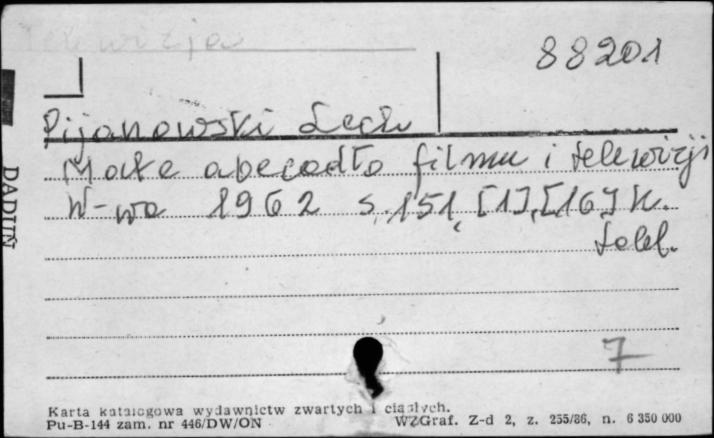 Telewizja
88201
Pijanowski Lech
Małe abecadło filmu i telewizji
W-wa 1962 s. 151, [1], [16] k.
tabl.
7
Karta katalogowa wydawnictw zwartych i ciągłych.
Pu-B-144 zam. nr 446/DW/ON WZGraf. Z-d 2, z. 255/86, n. 6 350 000